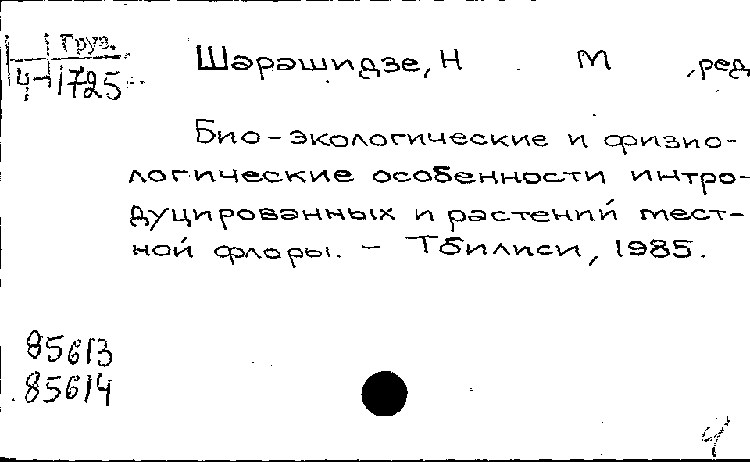 Груз.
4-1725
Шарашидзе, Н М ,ред
Био-экологические и физио-
логические особенности интро-
дуцированных и растений мест-
ной флоры. - Тбилиси, 1985.
85613
85614